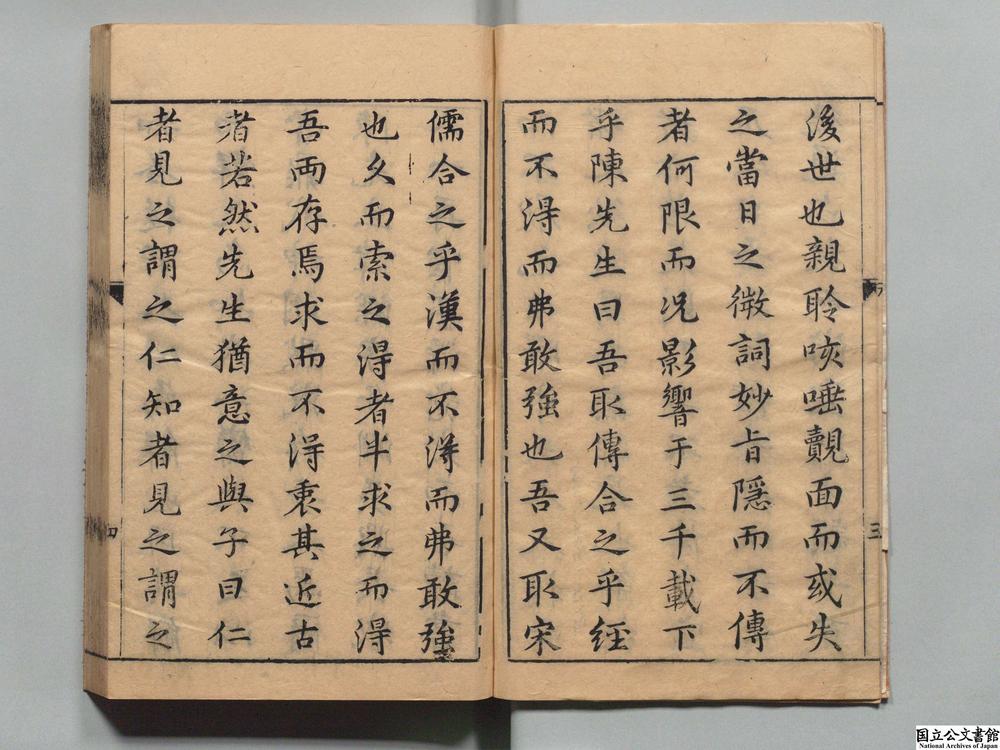 後世也親聆咳唾覿面而或失
之當日之微詞妙旨隱而不傳
者何限而况影響于三千載下
乎陳先生曰吾取傳合之乎經
而不得而弗敢強也吾又取宋
儒合之乎漢而不得而弗敢強
也久而索之得者半求之而得
吾両存焉求而不得衷其近古
者若然先生猶意之與子曰仁
者見之謂之仁知者見之謂之
三
四
国立公文書館
National Archives of Japan